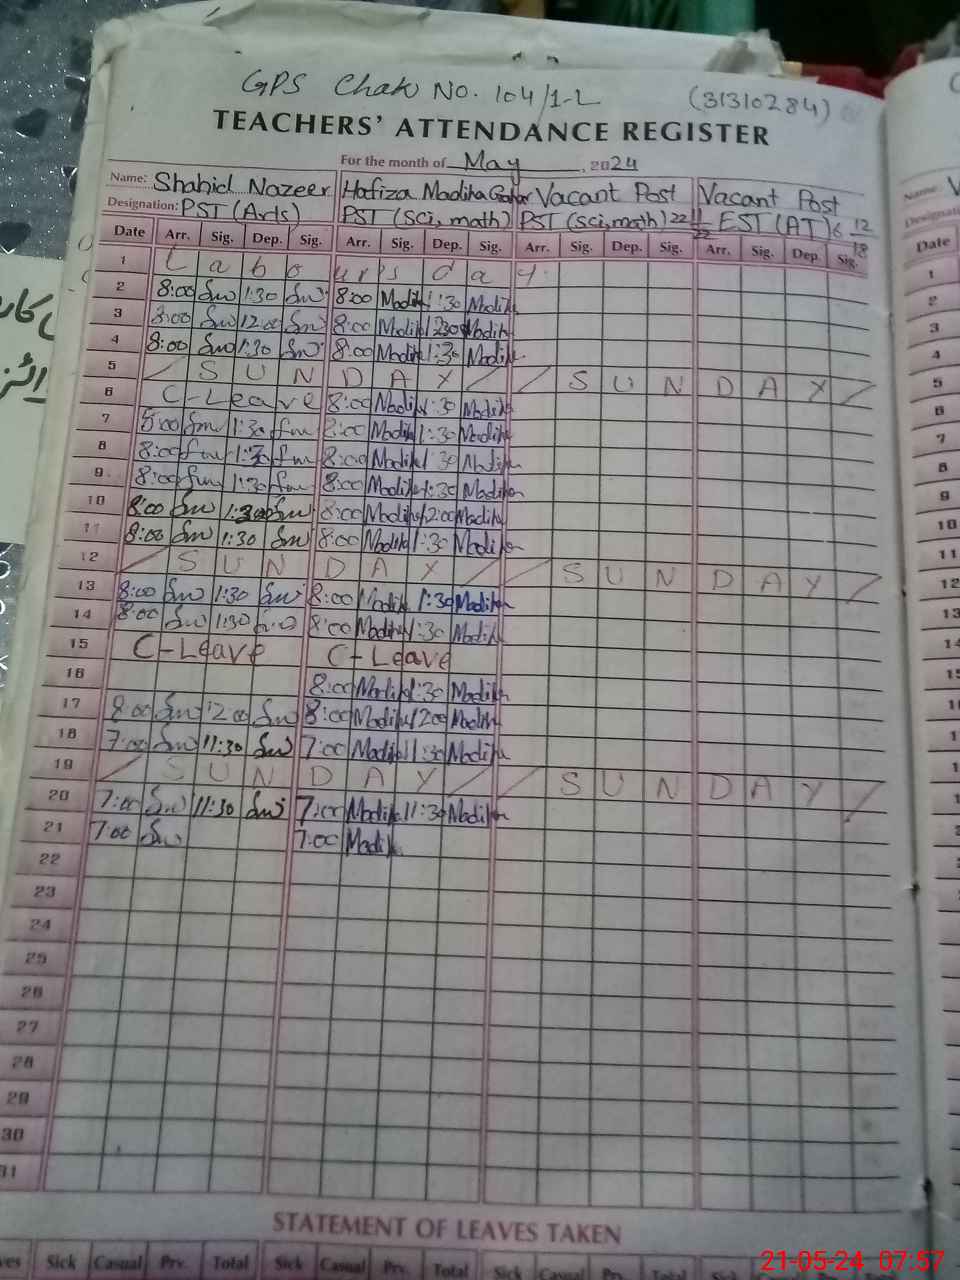 GPS Chak No. 104/1-L (31310284)
TEACHERS' ATTENDANCE REGISTER
For the month of May, 2024
Name: Shahid Nazeer Hafiza Madiha Vacant Post Vacant Post
Designation: PST (Arts) PST (Sci, math) PST (sci, math) EST (AT)
Date Arr. Sig. Dep. Sig. Arr. Sig. Dep. Sig. Arr. Sig. Dep. Sig. Arr. Sig. Dep. Sig.
1 Labours day.
2 8:00 1:30 8:00 Madiha 1:30 Madiha
3 8:00 12:00 8:00 Madiha Madiha
4 8:00 1:30 8:00 Madiha 1:30 Madiha
5 SUNDAY SUNDAY
6 C-Leave 8:00 Madiha 1:30 Madiha
7 1:30 8:00 Madiha 1:30 Madiha
8 8:00 1:30 8:00 Madiha 1:30 Madiha
9 8:00 1:30 8:00 Madiha 1:30 Madiha
10 8:00 8:00 Madiha 12:00 Madiha
11 8:00 1:30 8:00 Madiha 1:30 Madiha
12 SUNDAY SUNDAY
13 8:00 1:30 8:00 Madiha 1:30 Madiha
14 8:00 1:30 8:00 Madiha 1:30 Madiha
15 C-Leave C-Leave
16 8:00 Madiha 1:30 Madiha
17 8:00 12:00 8:00 Madiha 12:00 Madiha
18 7:00 11:30 7:00 Madiha 11:30 Madiha
19 SUNDAY SUNDAY
20 7:00 11:30 7:00 Madiha 11:30 Madiha
21 7:00 7:00 Madiha
22
23
24
25
26
27
28
29
30
31
STATEMENT OF LEAVES TAKEN
Sick Casual Prv. Total Sick Casual Prv. Total Sick Casual
21-05-24 07:57